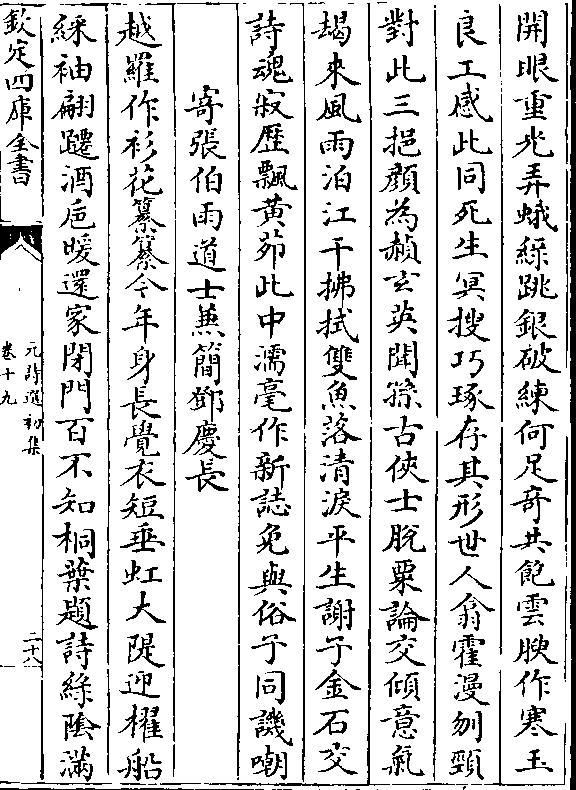 開眼重光弄蛾綠跳銀破練何足奇共飽雲腴作寒玉
良工感此同死生冥搜巧琢存其形世人翕霍漫刎頸
對此三挹顏為赬玄英聞孫古俠士脫粟論交傾意氣
朅來風雨泊江干拂拭雙魚落清淚平生謝子金石交
詩魂寂歷飄黃茆此中濡毫作新誌免與俗子同譏嘲
寄張伯雨道士蕪簡鄧慶長
越羅作衫花纂纂今年身長覺衣短垂虹大隄迎櫂船
綵袖翩躚酒巵暖還家閉門百不知桐葉題詩綠陰滿
欽定四庫全書
元詩選初集
卷十九
二十八